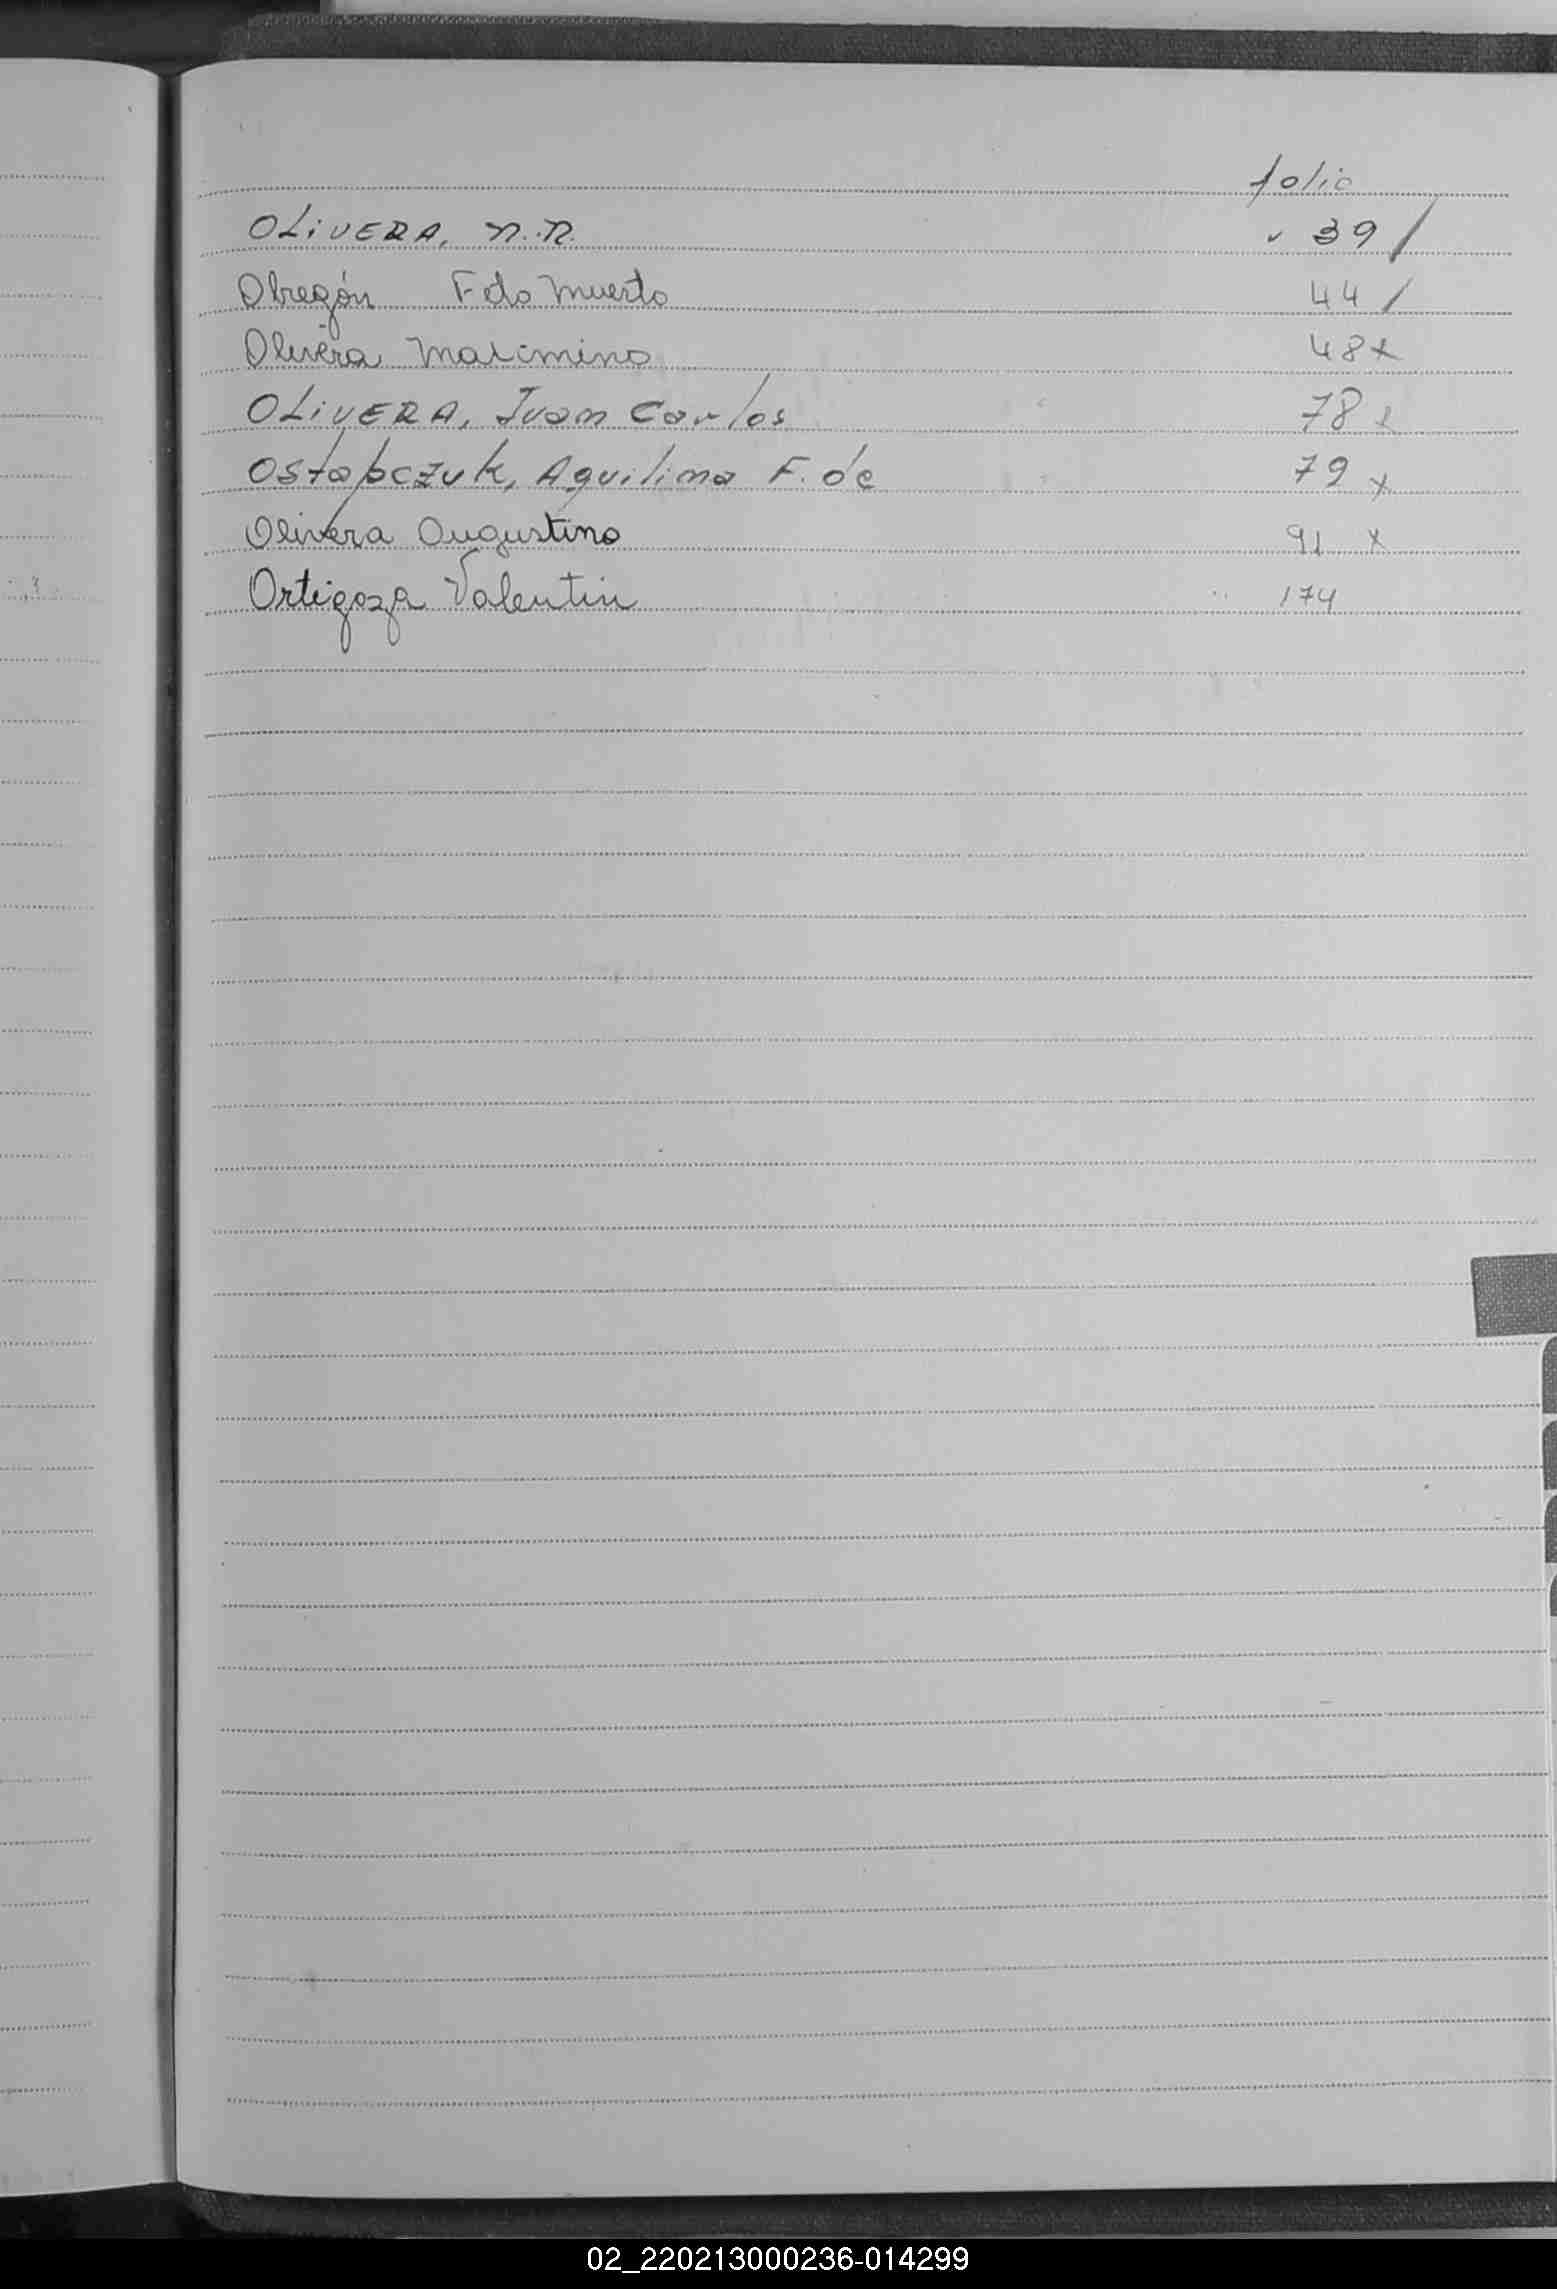 folio
OLIVERA, N.N. 39 /
Obregón Feto Muerto 44 /
Olivera Maximino 48 x
OLIVERA, Juan Carlos 78 x
Ostapczuk, Aquilina F. de 79 x
Olivera Augustino 91 x
Ortigoza Valentin 174
02_220213000236-014299